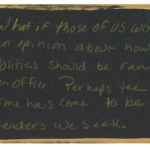 What if those of us with
an opinion about how
politics should be ran
in office. Perhaps the
time has come to be
leaders we seek.